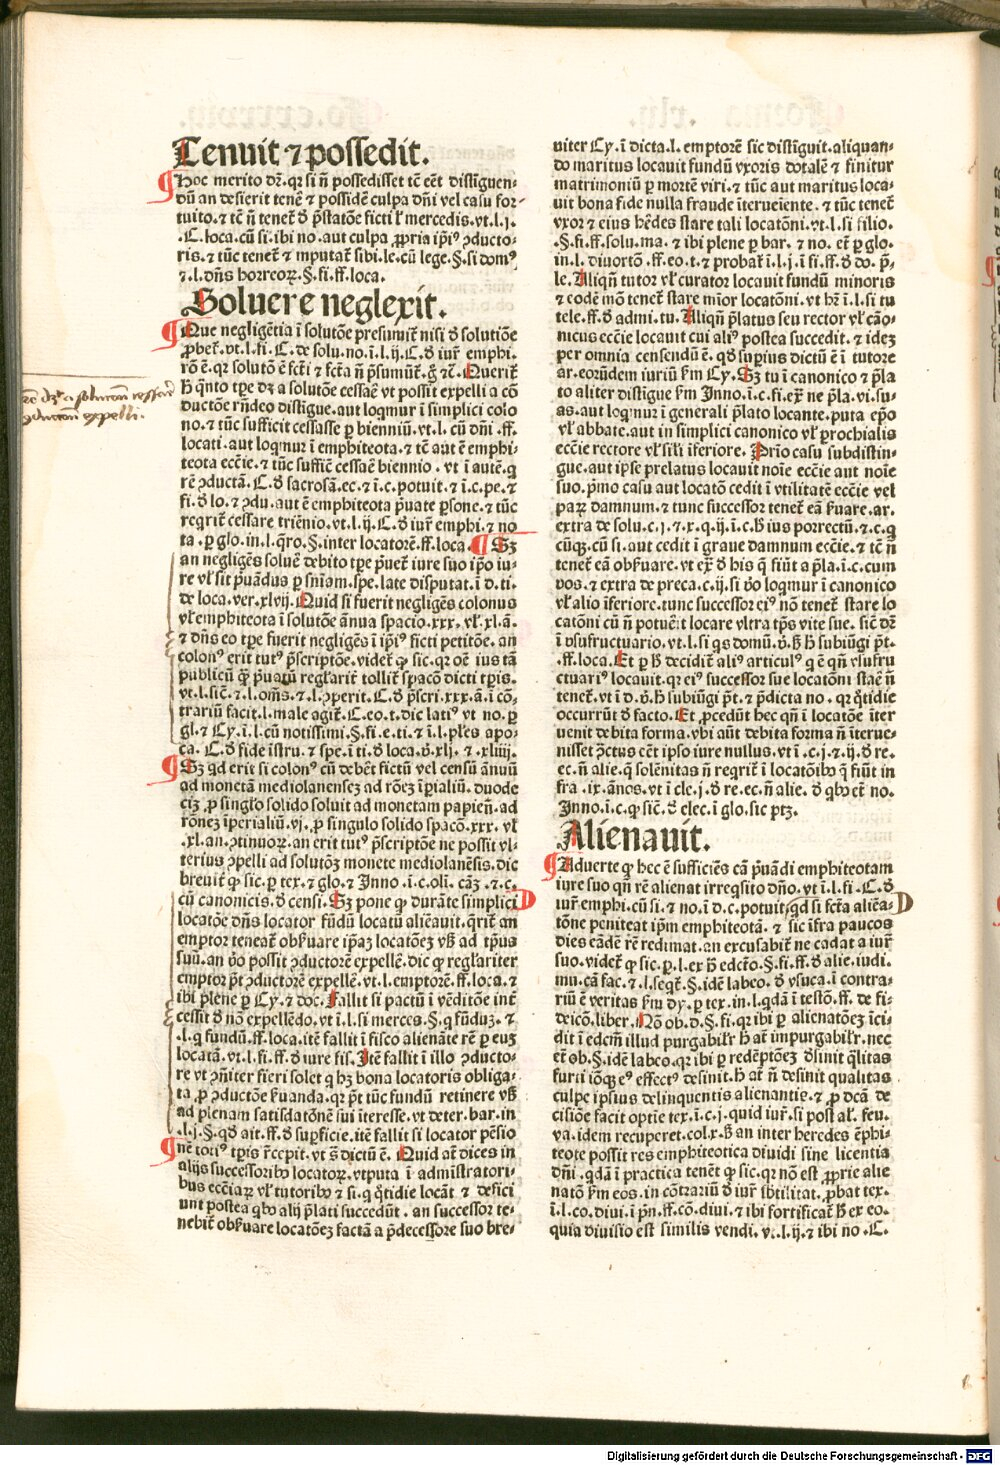 Tenuit ⁊ possedit.
Hoc merito dr̄. qr si ñ possedisset tc̄ eēt distīguen-
dū an desierit tenē ⁊ possidē culpa dn̄i vel casu for-
tuito. ⁊ tc̄ ñ tenet᷑ ð p̄statōe ficti ł mercedis. vt .l. j.
.C. loca. cū si. ibi no. aut culpa ꝓpria ip̄iꝰ ꝯducto-
ris. ⁊ tūc tenet᷑ ⁊ imputat᷑ sibi .le. cū lege. §. si domꝰ
⁊ .l. dn̄s horreoꝝ. §. fi. ff. loca.
Soluere neglexit.
Que negligētia ī solutōe presumit᷑ nisi ð solutiōe
ꝓbet᷑. vt. l. fi. C. de solu. no. ī. l. ij. C. ð iur̄ emphi.
rō ē. qr solutō ē fc̄ti ⁊ fc̄ta ñ p̄sumūt᷑. ḡ ⁊c̄. Querit᷑
ħ q̄nto tp̄e dꝫ a solutōe cessaē vt possit expelli a cō
ductōe rn̄deo distīgue. aut loqmur ī simplici colo
no. ⁊ tūc sufficit cessasse ꝑ bienniū. vt. l. cū dn̄i .ff.
locati. aut loqmur ī emphiteota. ⁊ tc̄ aut ē emphi-
teota ecc̄ie. ⁊ tūc suffic̄ cessaē biennio . vt ī autē. q
rē ꝯductā. C. ð sacrosā. ec. ⁊ ī. c. potuit. ⁊ ī. c. pe. ⁊
fi. ð lo. ⁊ ꝯdu. aut ē emphiteota p̄uate ꝑsone. ⁊ tūc
reqrit᷑ cessare triēnio. vt. l. ij. C. ð iur̄ emphi. ⁊ no
ta . ꝑ glo. in. l. q̄ro. §. inter locatorē. ff. loca. Sꝫ
an negligēs soluē debito tp̄e p̄uet᷑ iure suo ip̄o iu-
re vł sit p̄uādus ꝑ sn̄iam. spe. late disputat. ī ð. ti.
de loca. ver. xlvij. Quid si fuerit negligēs colonus
vł emphiteota ī solutōe ānua spacio. xxx. vł. xl. ā.
⁊ dn̄s eo tp̄e fuerit negligēs ī ip̄iꝰ ficti petitōe. an
colonꝰ erit tutꝰ p̄scriptōe. videt᷑ ꝙ sic. qr oē ius tā
publicū q̄ p̄uatū reglarit᷑ tollit᷑ spacō dicti tp̄is.
vt. l. sic̄. ⁊ .l. om̄s. ⁊ .l. ꝯperit. C. ð p̄scri. xxx. ā. ī cō-
trariū facit. l. male agit᷑. C. eo. t. dic latiꝰ vt no. ꝑ
gl. ⁊ Cy. ī. l. cū notissimi. §. fi. e. ti. ⁊ ī. l. ples apo-
ca. C. ð fide īstru. ⁊ spe. ī ti. ð loca. v̄. xlj. ⁊ .xliiij.
Sꝫ qd erit si colonꝰ cū debēt fictū vel censū ānuū
ad monetā mediolanensez ad rōez īꝑialiū. duode
ciꝫ ꝓ singło solido soluit ad monetam papien̄. ad
rōnez īperialiū. vj. ꝓ singulo solido spacō. xxx. vł
.xl. an. ꝯtinuoꝝ. an erit tutꝰ p̄scriptōe ne possit vl-
terius ꝯpelli ad solutōz monete mediolanēsis. dic
breuit᷑ ꝙ sic. ꝑ tex. ⁊ glo. ⁊ Inno . ī. c. oli. cāꝫ .⁊. c.
cū canonicis. ð censi. Sꝫ pone ꝙ durāte simplici
locatōe dn̄s locator fūdū locatū aliēauit. q̄rit᷑ an
emptor teneat᷑ obẜuare ip̄aꝫ locatōez vẜ ad tp̄us
suū. an v̄o possit ꝯductorē expellē. dic ꝙ reglariter
emptor p̄t ꝯductorē expellē. vt. l. emptorē. ff. loca. ⁊
ibi plene ꝑ Cy. ⁊ doc. Fallit si pactū ī vēditōe int᷑
cessit ð nō expellēdo. vt ī. l. si merces. §. q fūduꝫ. ⁊
.l. q fundū. ff. loca. itē fallit ī fisco alienāte rē ꝑ euꝫ
locatā. vt. l. fi. ff. ð iure fis. Itē fallit ī illo ꝯducto-
re vt ꝯīter fieri solet q hꝫ bona locatoris obliga-
ta ꝓ ꝯductōe ẜuanda. qr p̄t tūc fundū retinere vẜ
ad plenam satisdatōnē sui īteresse. vt deter. bar. in
.l. j. §. qð ait. ff. ð suꝑficie. itē fallit si locator pēsio
nē totiꝰ tp̄is r̄cepit. vt s̄ dictū ē. Quid at̄ dices in
alijs successoribꝰ locatoꝝ. vtputa ī admīstratori-
bus ecc̄iaꝝ vł tutoribꝰ ⁊ si. q q̄tidie locāt ⁊ desici
unt postea qbꝰ alij p̄lati succedūt . an successor te-
nebit᷑ obẜuare locatōez factā a p̄decessore suo bre-
uiter Cy. ī dicta. l. emptorē sic distīguit. aliquan-
do maritus locauit fundū vxoris dotalē ⁊ finitur
matrimoniū ꝑ mortē viri. ⁊ tūc aut maritus loca-
uit bona fide nulla fraude īterueīente . ⁊ tūc tenet᷑
vxor ⁊ eius hēdes stare tali locatōni. vt. l. si filio.
.§. fi. ff. solu. ma. ⁊ ibi plene ꝑ bar. ⁊ no. et̄ ꝑ glo.
in. l. diuortō. ff. eo. t. ⁊ probat᷑ ī. l. j. ī fi. ff. ð do. p̄-
le. Aliqn̄ tutor vł curator locauit fundū minoris
⁊ eodē mō tenet᷑ stare mīor locatōni. vt hr̄ ī. l. si tu
tele. ff. ð admi. tu. Aliqn̄ p̄latus seu rector vł cāo-
nicus ecc̄ie locauit cui aliꝰ postea succedit. ⁊ ideꝫ
per omnia censendū ē. qð suꝑius dictū ē ī tutore
ar. eorūdem iuriū ẜm Cy. Sꝫ tu ī canonico ⁊ p̄la
to aliter distīgue ẜm Inno. ī. c. fi. ex̄ ne p̄la. vi. su-
as. aut loqmur ī generali p̄lato locante. puta ep̄o
vł abbate. aut in simplici canonico vł prochialis
ecc̄ie rectore vł sili īferiore. Prīo casu subdistin-
gue. aut ipse prelatus locauit noīe ecc̄ie aut noīe
suo. p̄mo casu aut locatō cedit ī vtilitatē ecc̄ie vel
paꝝ damnum. ⁊ tunc successor tenet᷑ eā ẜuare. ar.
extra de solu. c. j. ⁊. x. q. ij. ī. c. ħ ius porrectū. ⁊. c. q
cūqꝫ. cū si. aut cedit ī graue damnum ecc̄ie. ⁊ tc̄ ñ
tenet᷑ eā obẜuare. vt ex̄ ð his q̄ fiūt a p̄la. ī. c. cum
vos. ⁊ extra de preca. c. ij. si v̄o loqmur ī canonico
vł alio īferiore. tunc successor eiꝰ nō tenet᷑ stare lo
catōni cū ñ potuēit locare vltra tp̄s vite sue. sic̄ dr̄
ī vsufructuario. vt. l. si qs domū. v̄. ħ ħ subiūgi p̄t.
.ff. loca. Et ꝑ ħ decidit᷑ aliꝰ articulꝰ q ē qn̄ vsufru
ctuariꝰ locauit. qr eiꝰ successor sue locatōni staē ñ
tenet᷑. vt ī ð. v̄. ħ subiūgi p̄t. ⁊ p̄dicta no . qr q̄tidie
occurrūt ð facto. Et ꝓcedūt hec qn̄ ī locatōe īter
uenit debita forma. vbi aūt debita forma ñ īterue-
nisset ꝯctus eēt ipso iure nullus. vt ī. c. j. ⁊. ij. ð re.
ec. ñ alie. q̄ solēnitas ñ reqrit᷑ ī locatōibꝰ q̄ fiūt in
fra . ix. ānos. vt ī cle. j. ð re. ec. ñ alie. ð qbꝰ et̄ no.
Inno. ī. c. ꝙ sic̄. ð elec. ī glo. sic ptꝫ.
Alienauit.
Aduerte ꝙ hec ē sufficiēs cā p̄uādi emphiteotam
iure suo qn̄ rē alienat irreqsito dn̄o. vt ī. l. fi. C. ð
iur̄ emphi. cū si. ⁊ no. ī ð. c. potuit. qd si fc̄ta aliēa-
tōne peniteat ip̄m emphiteotā. ⁊ sic īfra paucos
dies eādē rē redimat. an excusabit᷑ ne cadat a iur̄
suo. videt᷑ ꝙ sic. ꝑ. l. ex ħ edc̄to. §. fi. ff. ð alie. iudi.
mu. cā fac. ⁊ .l. seqt᷑. §. idē labeo. ð vsuca. ī contra-
riū ē veritas ẜm dy. ꝑ tex. in. l. qdā ī testō. ff. de fi-
deicō. liber. Nō ob. ð. §. fi. qr ibi ꝑ alienatōez īci-
dit ī edcm̄ illud purgabił᷑ ħ at̄ impurgabił᷑. nec
et̄ ob. §. idē labeo. qr ibi ꝑ redēptōez ðsinit q̄litas
furti iōqꝫ eꝰ effectꝰ desinit. ħ at̄ ñ desinit qualitas
culpe ipsius delinquentis alienantie. ⁊ ꝓ dc̄ā de
cisiōne facit optie tex. ī. c. j. quid iur̄. si post al᷑. feu.
va. idem recuperet. col. x. ẜ an inter heredes ēphi-
teote possit res emphiteotica diuidi sine licentia
dn̄i. qdā ī practica tenēt ꝙ sic. qr nō est ꝓprie alie
natō ẜm eos. in cōtrariū ð iur̄ sbtilitat. ꝓbat tex.
ī. l. co. diui. ī p̄n. ff. cō. diui. ⁊ ibi fortificat᷑ ħ ex eo.
quia diuisio est similis vendi. v. l. ij. ⁊ ibi no. C.
D
D
Digitalisierung gefördert durch die Deutsche Forschungsgemeinschaft - DFG